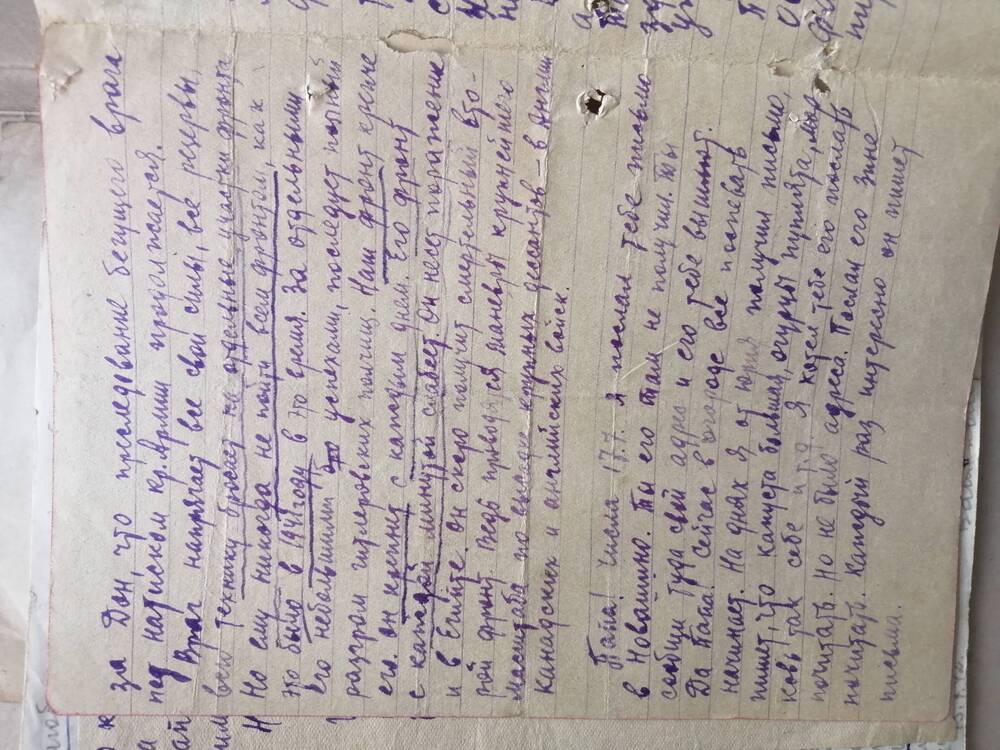 за Дон, что преследование бегущего врага
под натиском кр. Армии продолжается.
Враг напрягает все свои силы, все резервы,
всю технику бросает на отдельные участки фронта
Но ему никогда не пойти всем фронтом, как
это было в 1941 году в это время. За отдельными
его небольшими успехами, последует полный
разгром гитлеровских полчищ. Наш фронт крепче
его. Он крепнет с каждым днем. Его фронт
с каждой минутой слабеет. Он несет поражение
и в Египте. Он скоро получит смертельный вто-
рой фронт. Ведь проводятся маневры крупнейшего
масштаба по высадке крупных дессантов – в Англии
канадских и английских войск.
Папа! Числа 17.7. я послал тебе письмо
в Новашино. Ты его там не получил. Ты
сообщи туда свой адрес и его тебе вышлют.
Да Папа! Сейчас в огороде все поспевать
начинает. На днях я от Юрия получил письмо,
пишет, что капуста большая, огурцы пуплята, мор-
ковь так себе и т.д. Я хотел тебе его послать
почитать. Но не было адреса. Послал его Зине
почитать. Каждый раз интересно он пишет
письма.